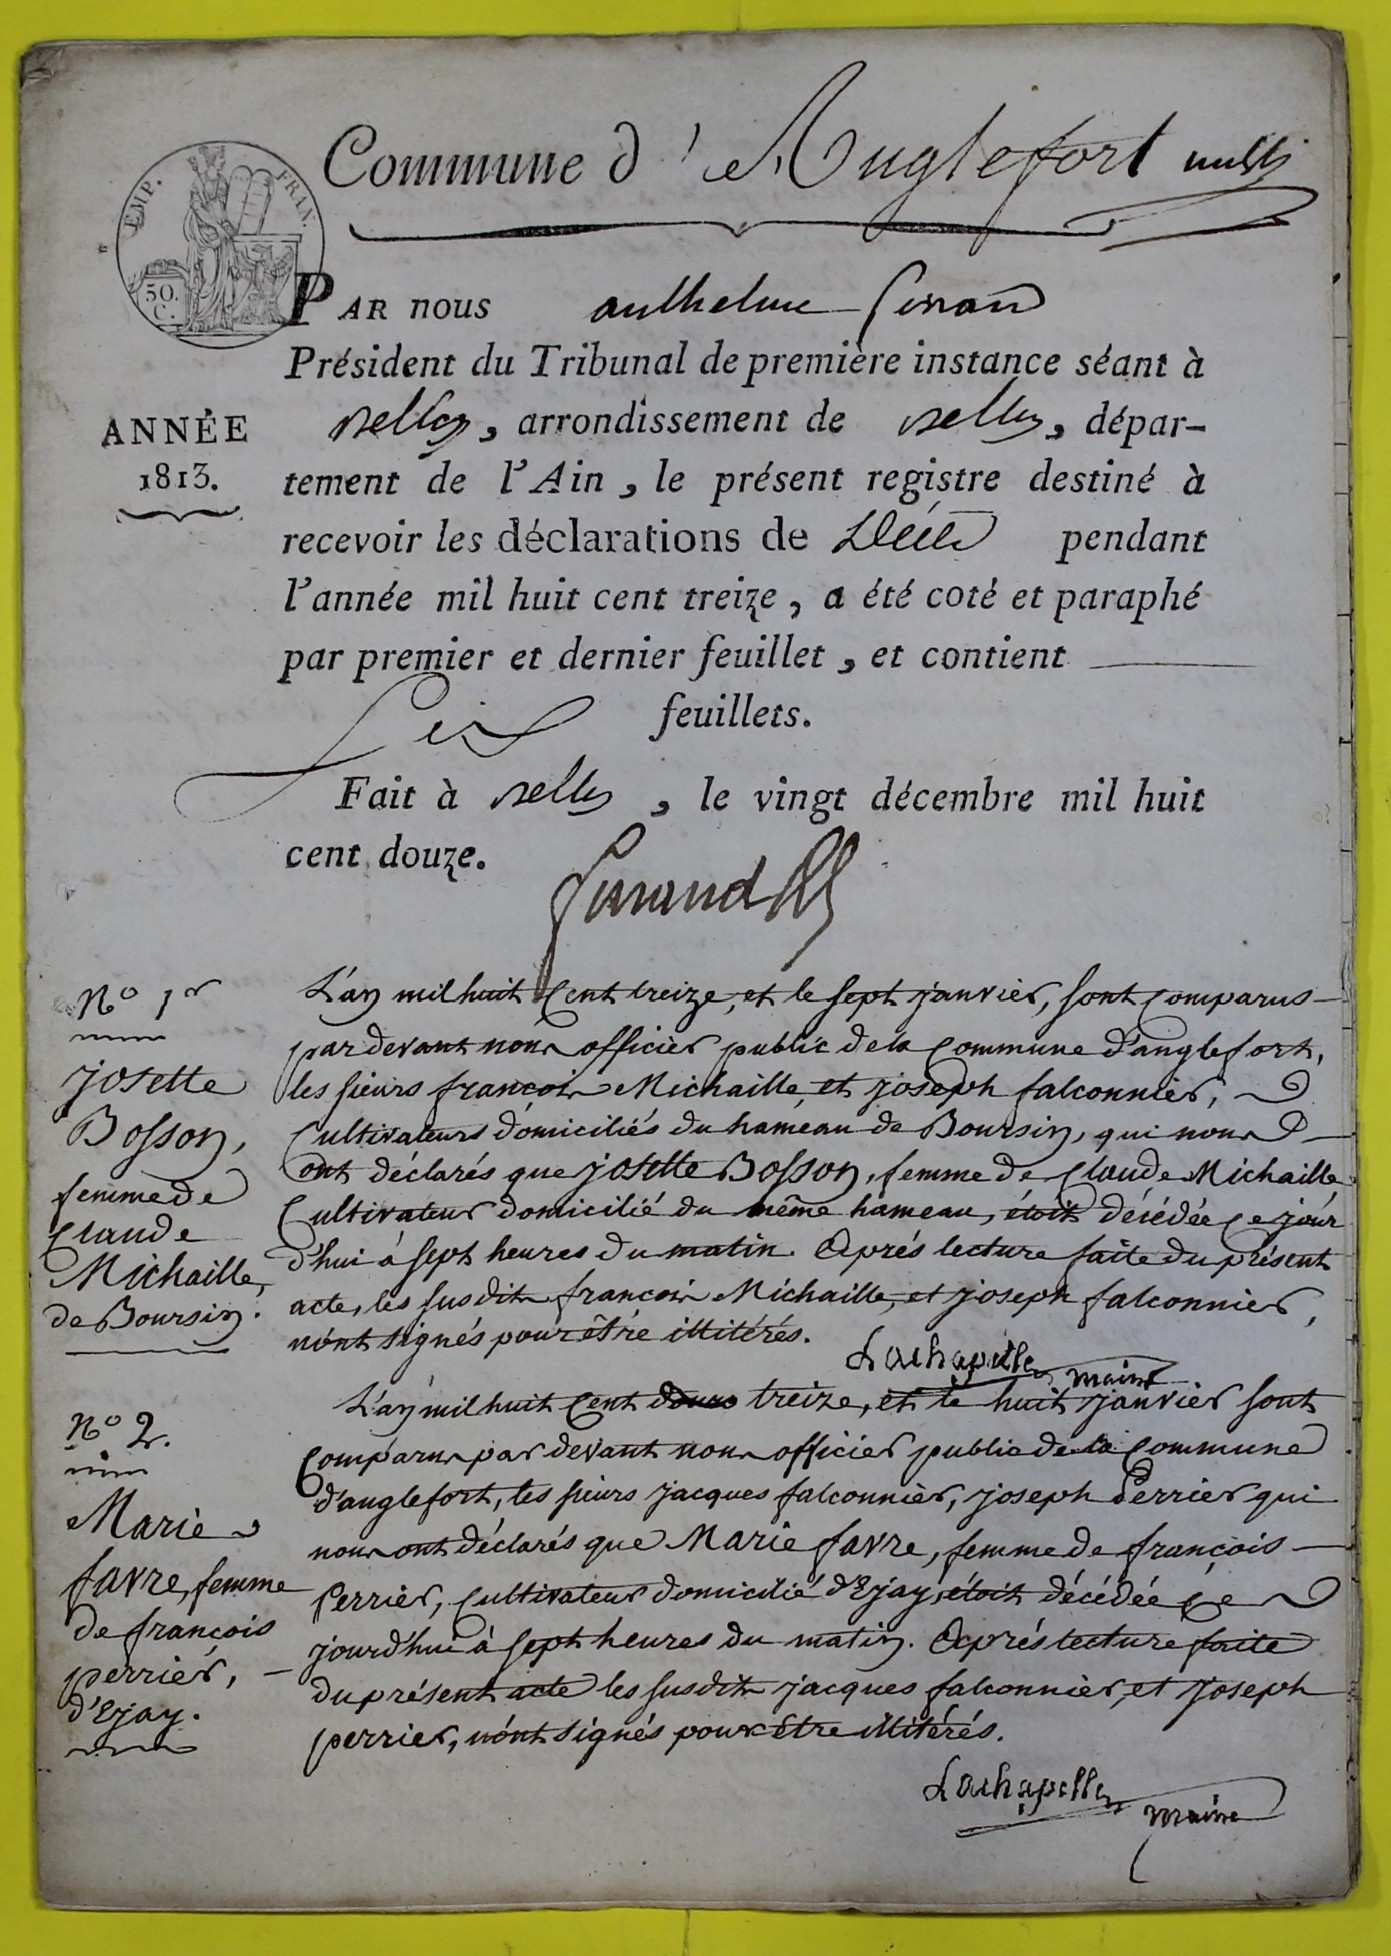 Commune d'Anglefort
EMP. FRAN.
50.
C.
PAR nous anthelme
Président du Tribunal de première instance séant à
Belley, arrondissement de Belley, dépar-
ANNÉE
1813.
tement de l'Ain, le présent registre destiné à
recevoir les déclarations de Décès pendant
l'année mil huit cent treize, a été coté et paraphé
par premier et dernier feuillet, et contient
Six feuillets.
Fait à Belley, le vingt décembre mil huit
cent douze.
N° 1er
Josette
Bosson,
femme de
Claude
Michaille,
de Boursin.
L'an mil huit Cent treize, et le sept janvier, sont comparus
par devant nous officier public de la Commune d'anglefort,
les sieurs françois Michaille, et joseph falconnier,
Cultivateurs domiciliés du hameau de Boursin, qui nous
ont déclarés que josette Bosson, femme de Claude Michaille
Cultivateur domicilié du même hameau, étoit décédée ce jour
d'hui à sept heures du matin. Après lecture faite du présent
acte, les susdits françois Michaille, et joseph falconnier,
n'ont signés pour être illitérés.
Lachapelle maire
N° 2.
Marie
favre, femme
de françois
perrier,
d'Ejay.
L'an mil huit Cent douze treize, et le huit janvier sont
Comparus par devant nous officier public de la Commune
d'anglefort, les sieurs jacques falconnier, joseph Perrier qui
nous ont déclarés que Marie favre, femme de françois
Perrier, Cultivateur domicilié d'Ejay, étoit décédée ce
jourd'hui à sept heures du matin. Après lecture faite
du présent acte les susdits jacques falconnier, et joseph
perrier, n'ont signés pour être illitérés.
Lachapelle
maire